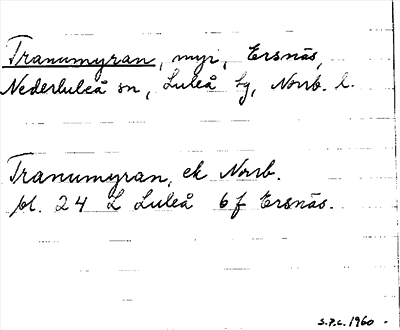 Tranumyran, myr, Ersnäs,
Nederluleå sn, Luleå tg, Norrb. l.
Tranumyran, ek Norrb.
bl. 24 L Luleå 6 f Ersnäs.
S.P.C. 1960